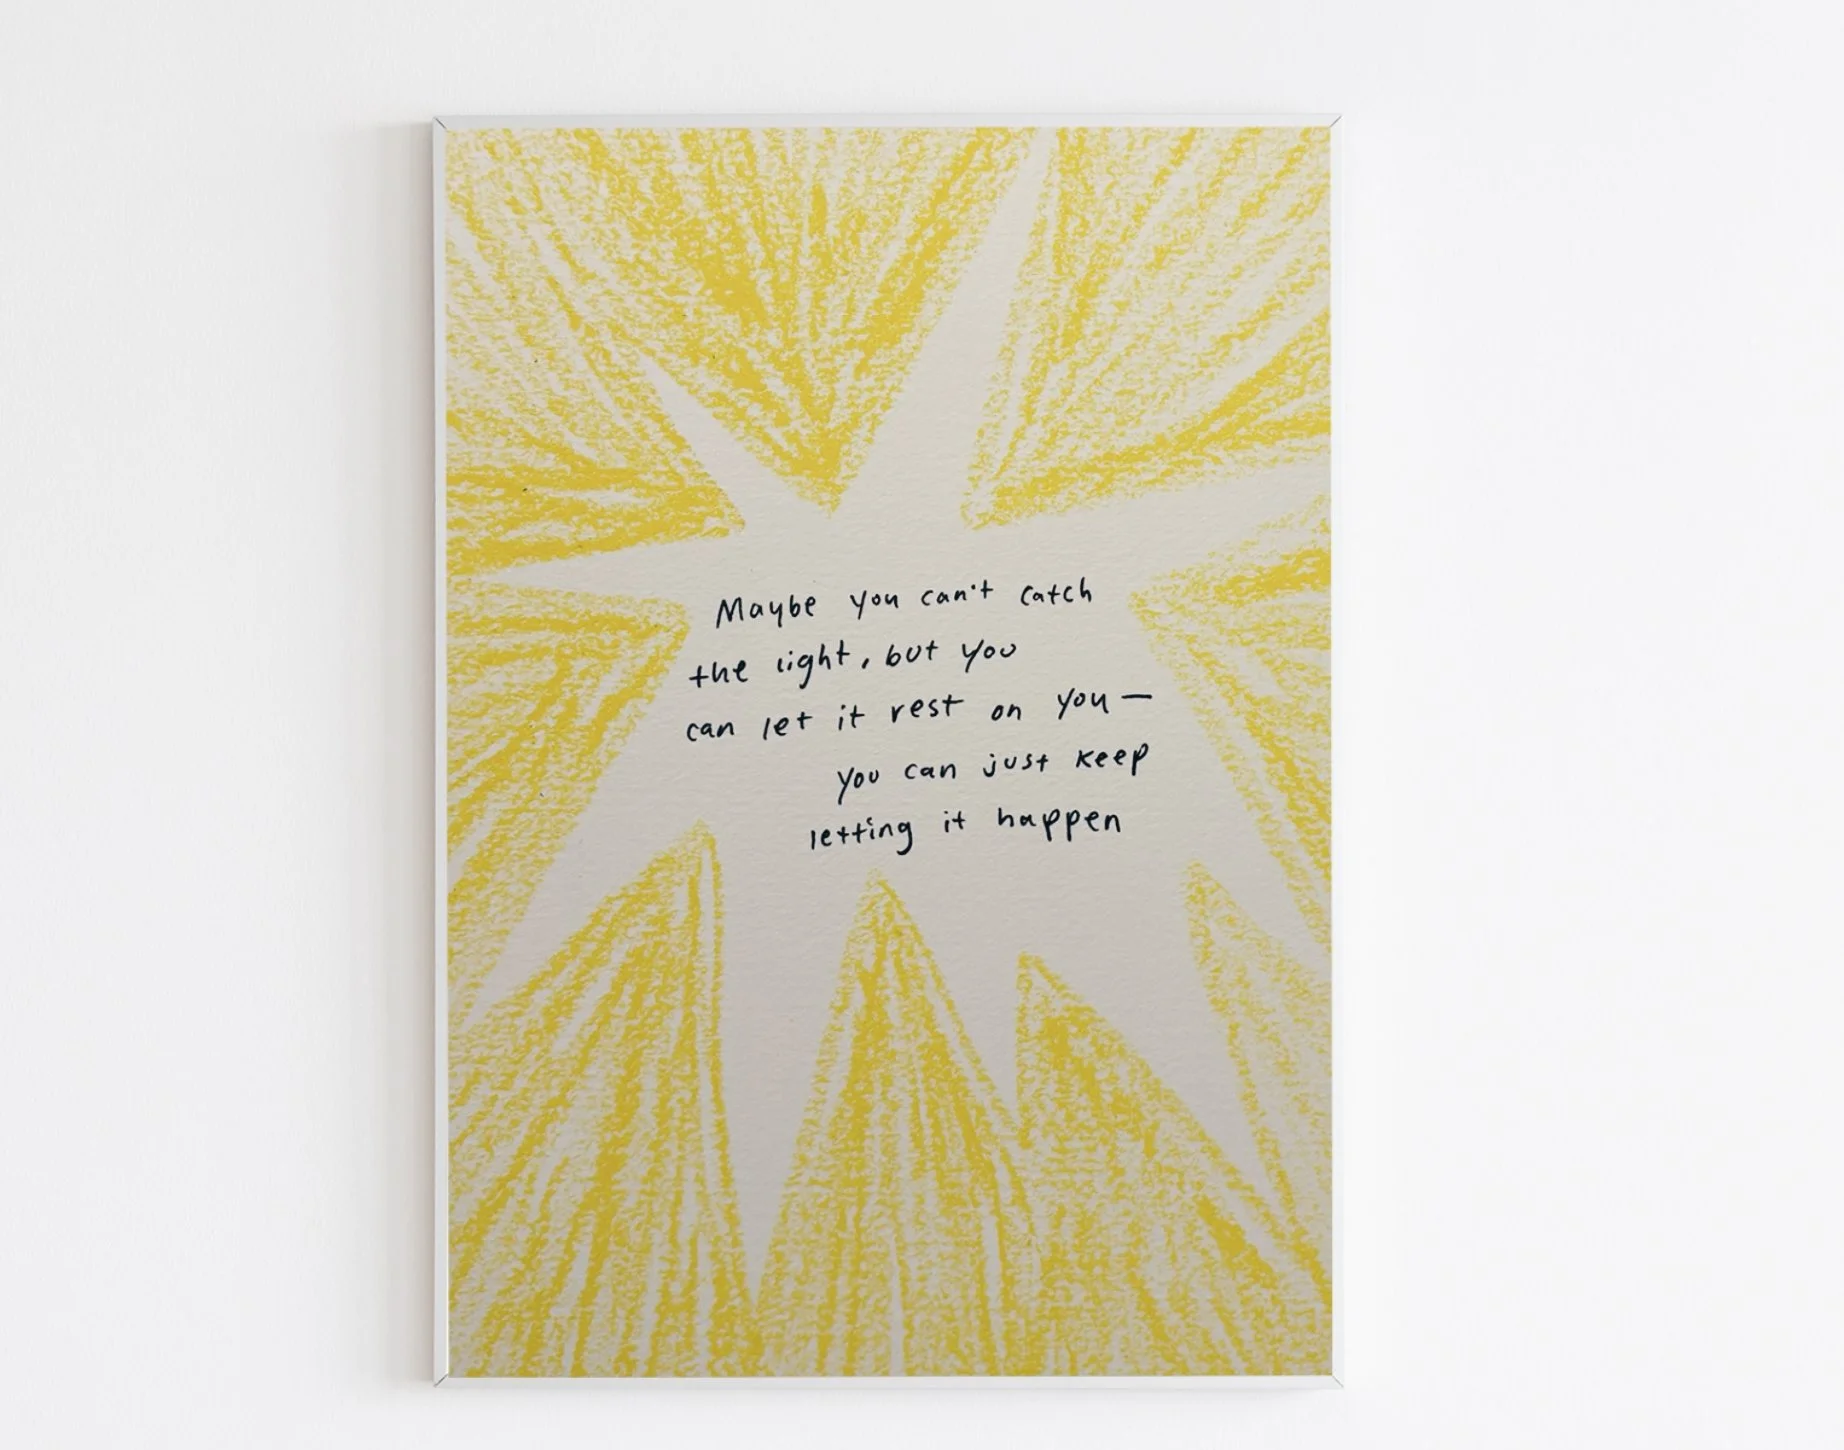 Maybe you can't catch
the light, but you
can let it rest on you—
you can just keep
letting it happen